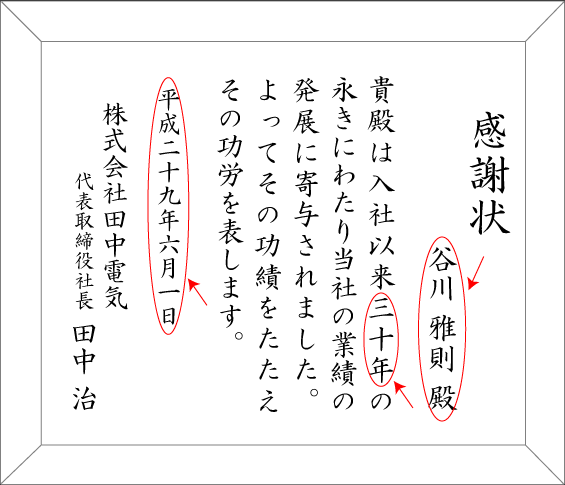 感謝状
谷川 雅則 殿
貴殿は入社以来三十年の
永きにわたり当社の業績の
発展に寄与されました。
よってその功績をたたえ
その功労を表します。
平成二十九年六月一日
株式会社田中電気
代表取締役社長 田中 治